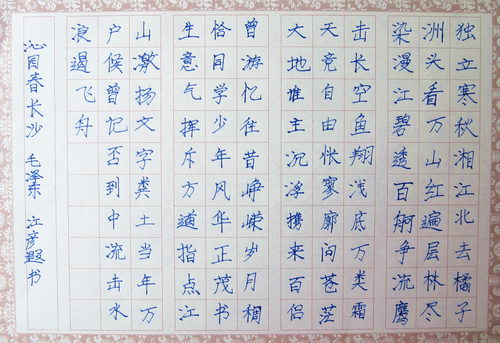 独立寒秋湘江北去橘子
洲头看万山红遍层林尽
染漫江碧透百舸争流鹰
击长空鱼翔浅底万类霜
天竞自由怅寥廓问苍茫
大地谁主沉浮携来百侣
曾游忆往昔峥嵘岁月稠
恰同学少年风华正茂书
生意气挥斥方遒指点江
山激扬文字粪土当年万
户候曾记否到中流击水
浪遏飞舟
沁园春长沙 毛泽东 江彦书